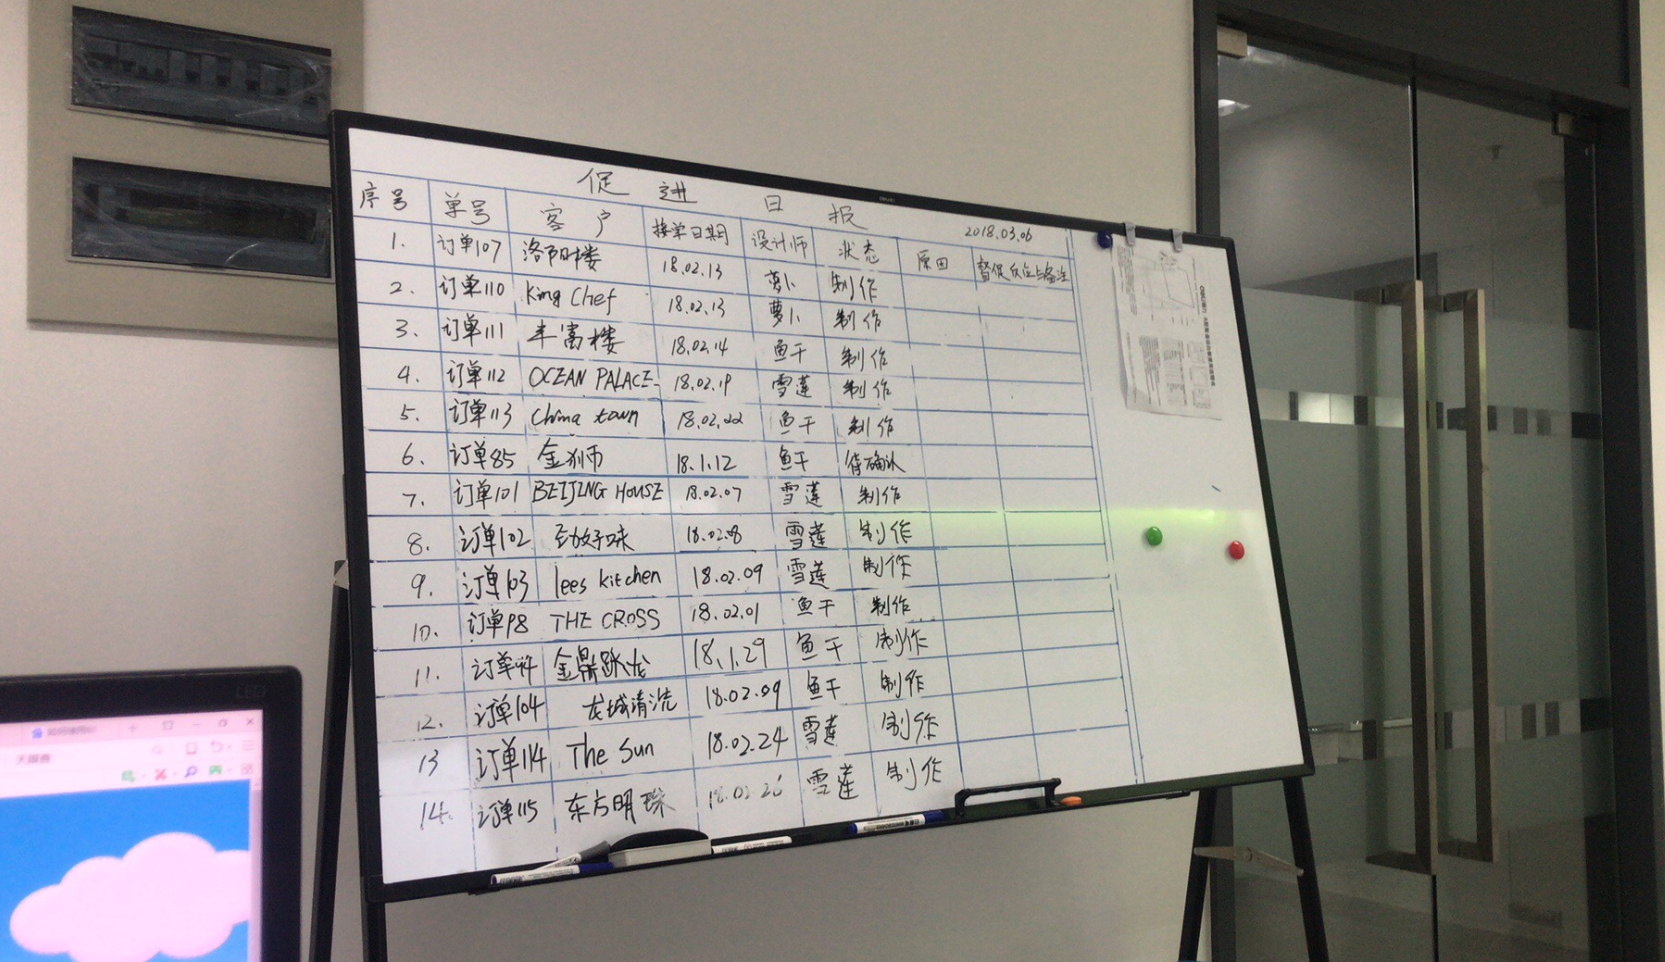 促进日报
2018.03.06
序号 单号 客户 接单日期 设计师 状态 原因 督促反应与备注
1. 订单107 洛阳楼 18.02.13 萝卜 制作
2. 订单110 King Chef 18.02.13 萝卜 制作
3. 订单111 丰富楼 18.02.14 鱼干 制作
4. 订单112 OCEAN PALACE 18.02.19 雪莲 制作
5. 订单113 China town 18.02.22 鱼干 制作
6. 订单85 金狮 18.1.12 鱼干 待确认
7. 订单101 BEIJING HOUSE 18.02.07 雪莲 制作
8. 订单102 好味 18.02.08 雪莲 制作
9. 订单103 lees kitchen 18.02.09 雪莲 制作
10. 订单98 THE CROSS 18.02.01 鱼干 制作
11. 订单 金鼎跃龙 18.1.29 鱼干 制作
12. 订单104 龙城清洗 18.02.09 鱼干 制作
13 订单114 The Sun 18.02.24 雪莲 制作
14. 订单115 东方明珠 18.02.26 雪莲 制作
LED